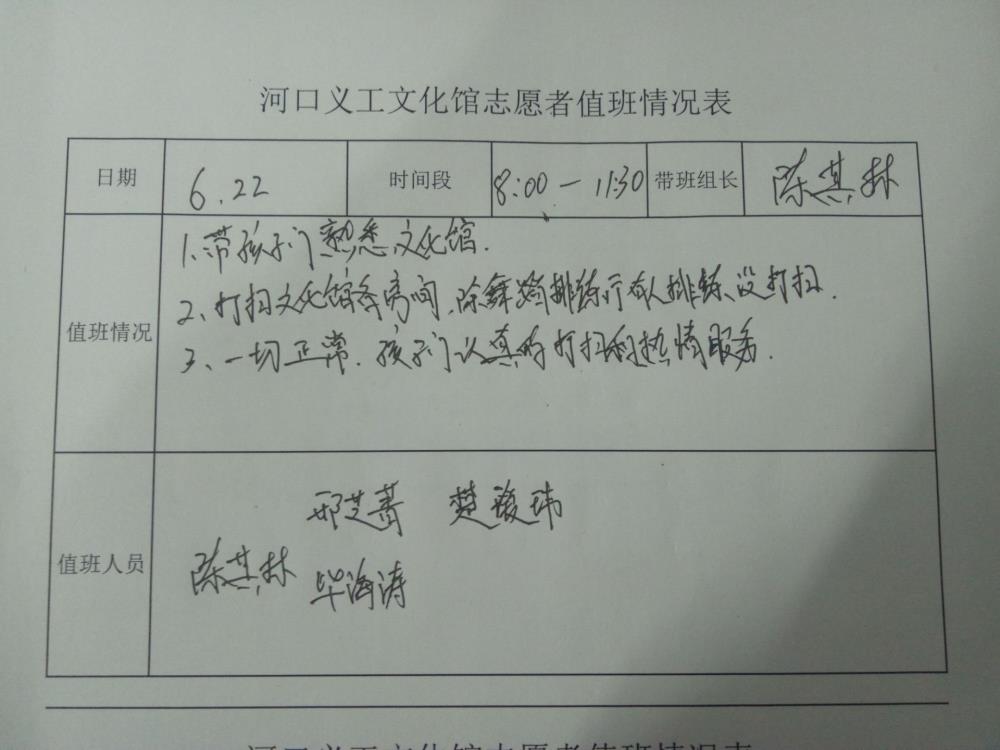 河口义工文化馆志愿者值班情况表
日期 6.22 时间段 8:00-11:30 带班组长 陈其林
值班情况
1.带孩子们熟悉文化馆.
2、打扫文化馆各房间,除舞蹈排练厅有人排练、没打扫.
3、一切正常.孩子们认真的打扫和热情服务.
值班人员
邢芝菁 楚璇玮
陈其林 毕海涛
河口义工文化馆志愿者值班情况表